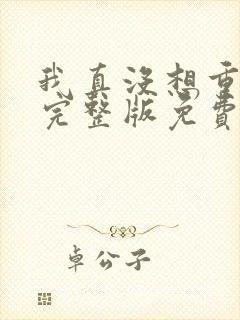 我真没想重
完整版免费
卓公子